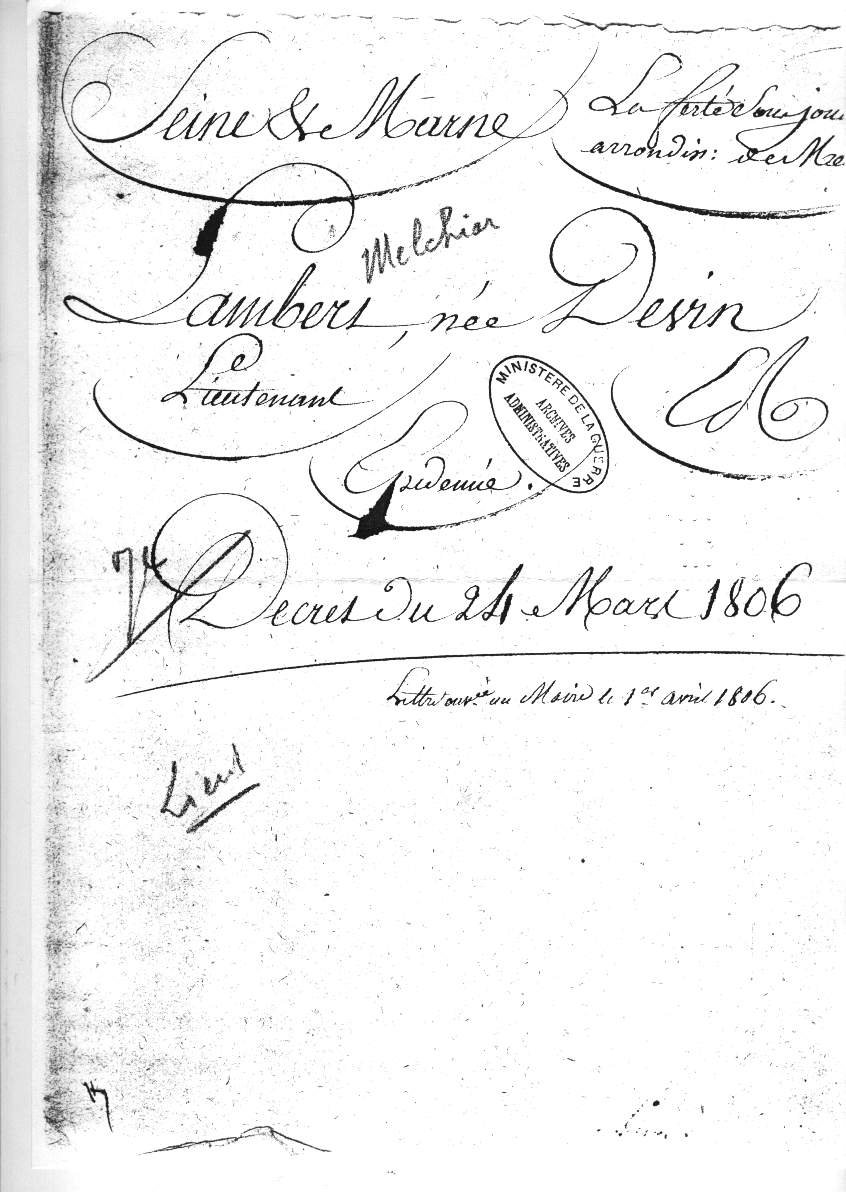 Seine & Marne
La ferté Sous jou
arrondis: de M
Melchior
Lambert, née Devin
Lieutenant
MINISTERE DE LA GUERRE
ARCHIVES
ADMINISTRATIVES
Epidemie.
74
Decret du 24 Mars 1806
Lettre au Maire le 1er avril 1806.
Lieut